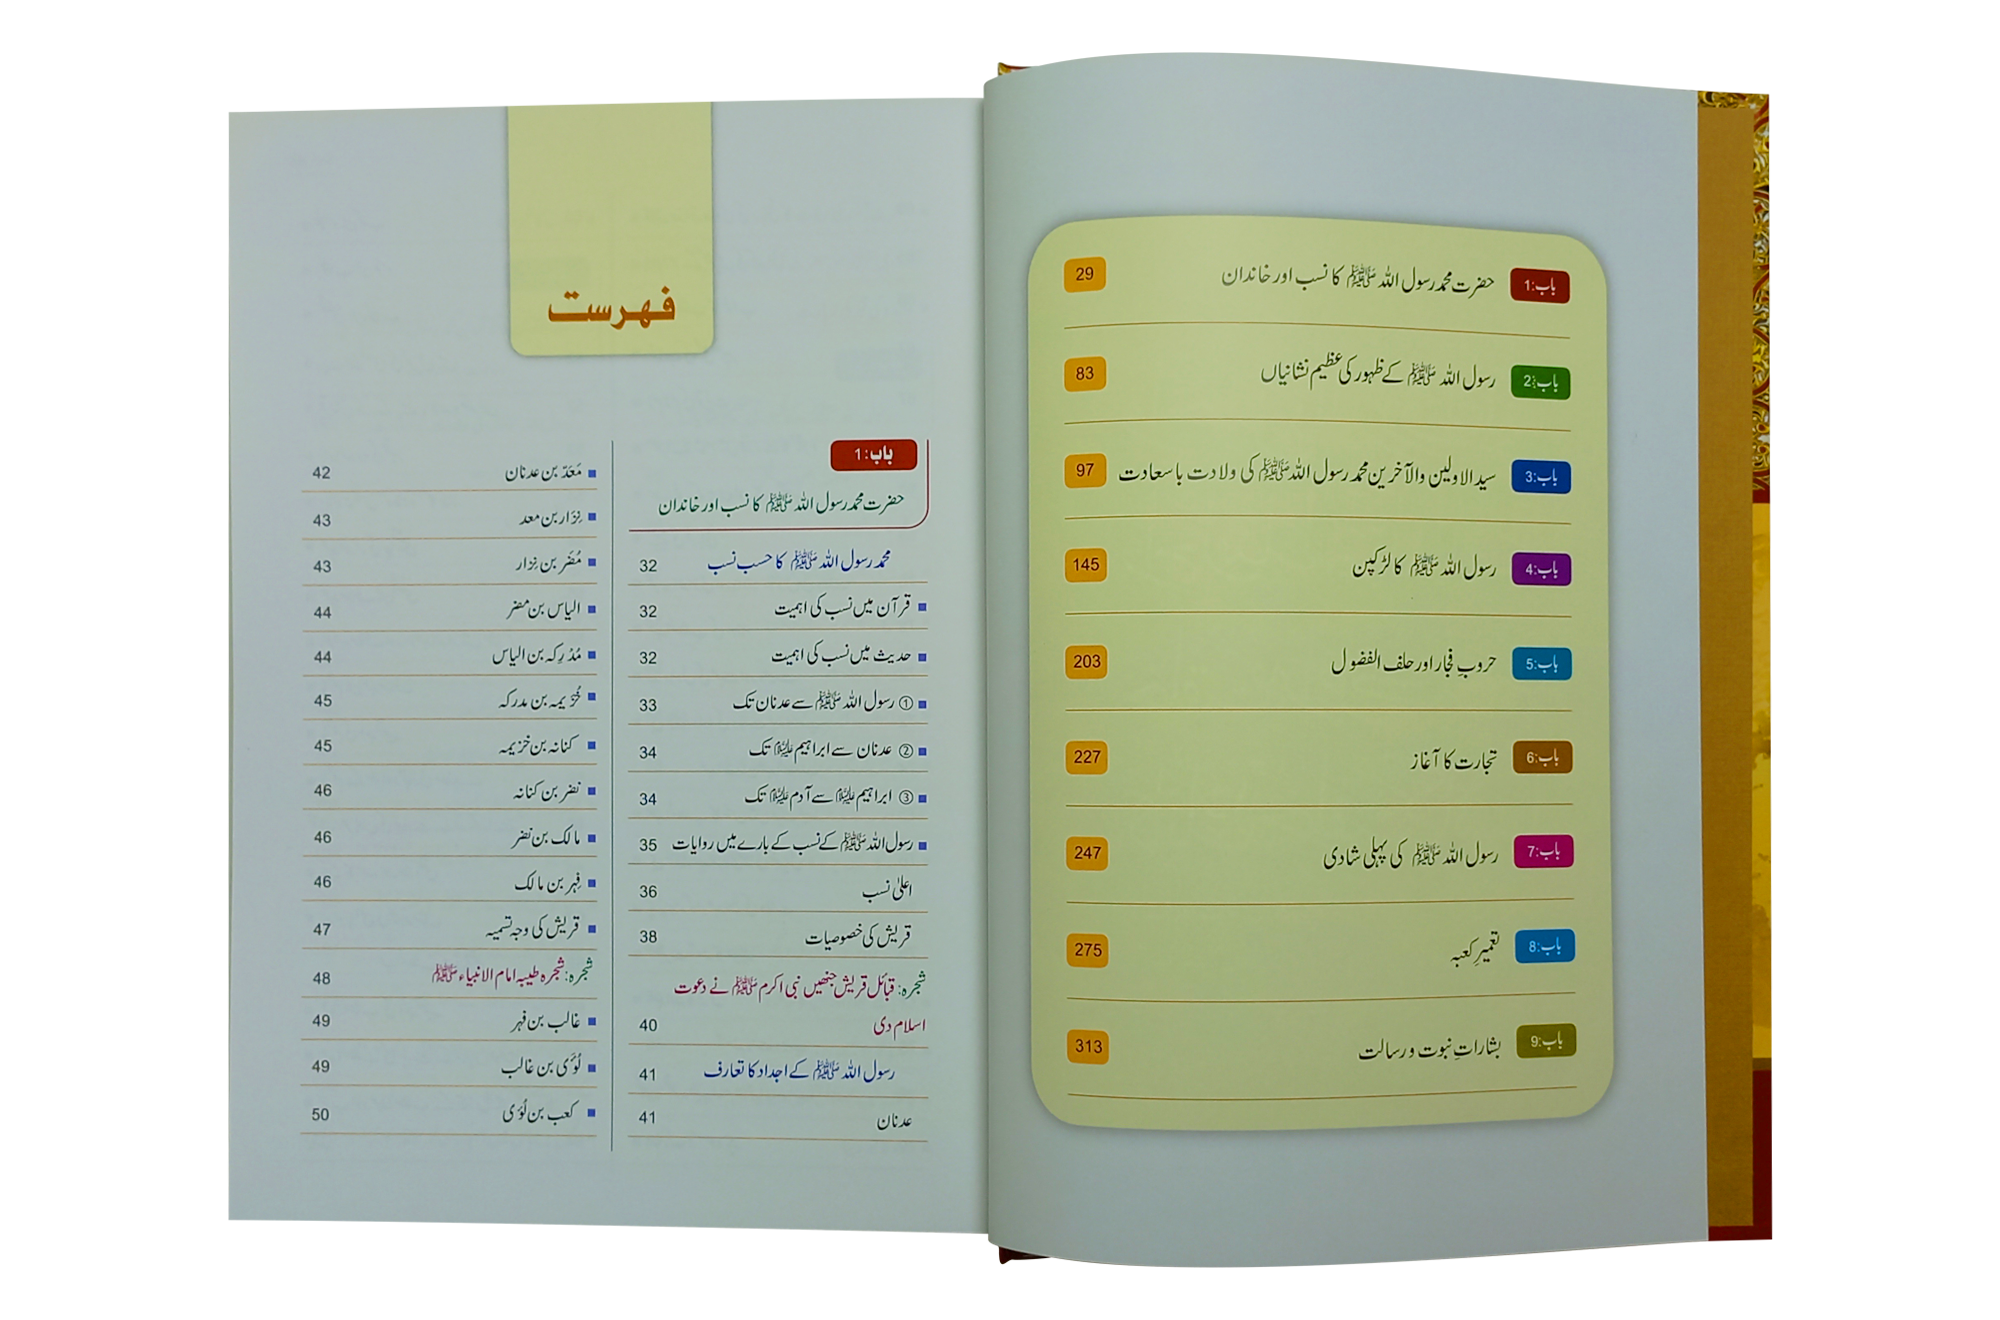 باب:1 حضرت محمد رسول اللہ ﷺ کا نسب اور خاندان 29
باب:2 رسول اللہ ﷺ کے ظہور کی عظیم نشانیاں 83
باب:3 سید الاولین والآخرین محمد رسول اللہ ﷺ کی ولادت باسعادت 97
باب:4 رسول اللہ ﷺ کا لڑکپن 145
باب:5 حروبِ فجار اور حلف الفضول 203
باب:6 تجارت کا آغاز 227
باب:7 رسول اللہ ﷺ کی پہلی شادی 247
باب:8 تعمیرِ کعبہ 275
باب:9 بشاراتِ نبوت و رسالت 313
فہرست
باب:1
حضرت محمد رسول اللہ ﷺ کا نسب اور خاندان
محمد رسول اللہ ﷺ کا حسب نسب 32
قرآن میں نسب کی اہمیت 32
حدیث میں نسب کی اہمیت 32
① رسول اللہ ﷺ سے عدنان تک 33
② عدنان سے ابراہیم علیہ السلام تک 34
③ ابراہیم علیہ السلام سے آدم علیہ السلام تک 34
رسول اللہ ﷺ کے نسب کے بارے میں روایات 35
اعلیٰ نسب 36
قریش کی خصوصیات 38
شجرہ: قبائل قریش جنھیں نبی اکرم ﷺ نے دعوت
اسلام دی 40
رسول اللہ ﷺ کے اجداد کا تعارف 41
عدنان 41
مَعَدّ بن عدنان 42
نِزار بن معد 43
مُضَر بن نِزار 43
الیاس بن مضر 44
مُدْرِکہ بن الیاس 44
خُزَیمہ بن مدرکہ 45
کنانہ بن خزیمہ 45
نضر بن کنانہ 46
مالک بن نضر 46
فِہر بن مالک 46
قریش کی وجہ تسمیہ 47
شجرہ: شجرہ طیبہ امام الانبیاء ﷺ 48
غالب بن فہر 49
لُؤَی بن غالب 49
کعب بن لُؤَی 50